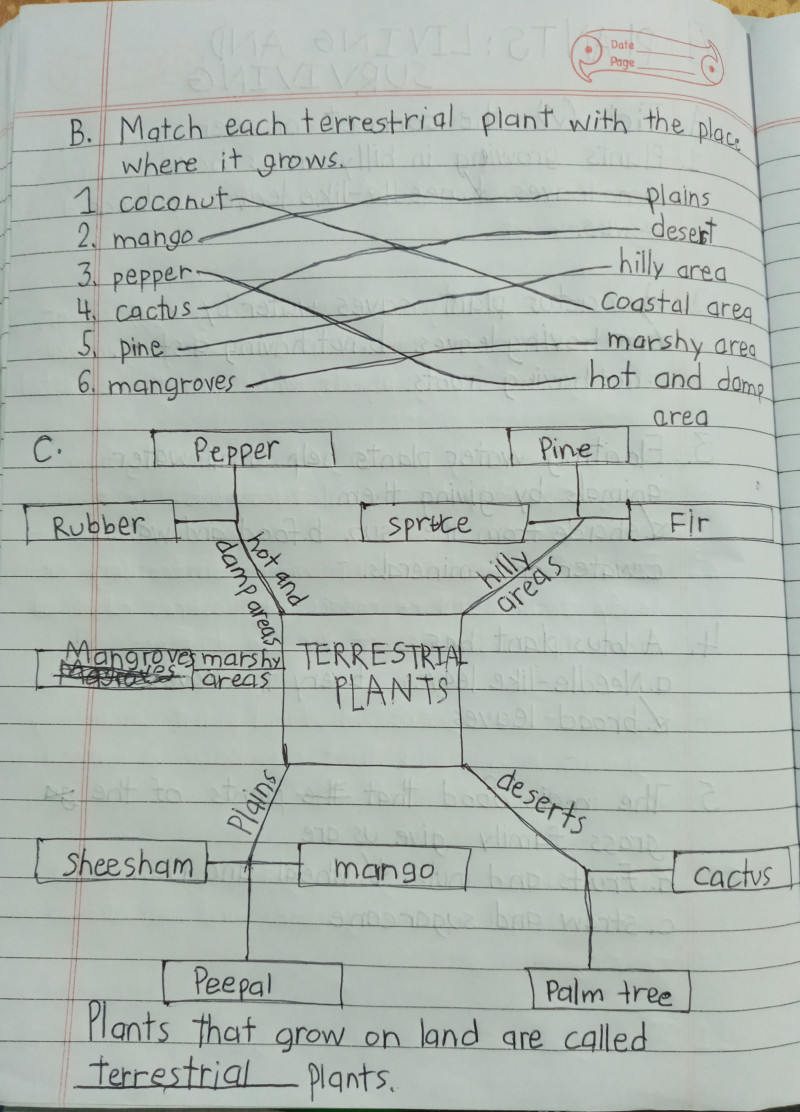 Date
Page
B. Match each terrestrial plant with the place
where it grows.
1. coconut plains
2. mango desert
3. pepper hilly area
4. cactus coastal area
5. pine marshy area
6. mangroves hot and damp
area
C.
Pepper Pine
Rubber spruce Fir
hot and
damp areas
hilly
areas
Mangroves marshy
areas
TERRESTRIAL
PLANTS
Plains
deserts
Sheesham mango cactus
Peepal Palm tree
Plants that grow on land are called
terrestrial plants.